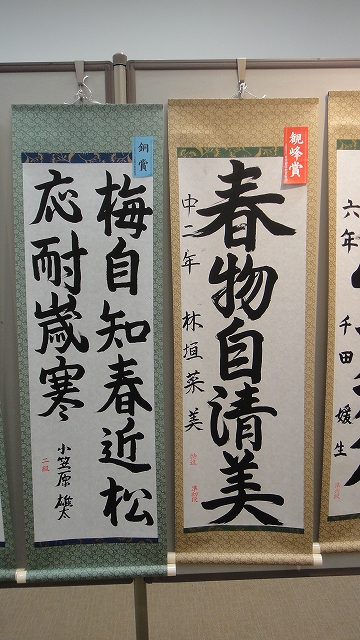 観峰賞
春物自清美
中二年 林垣菜美
特選 準初段
銅賞
梅自知春近松
応耐歳寒
小笠原雄太
二級
六年 千田媛生